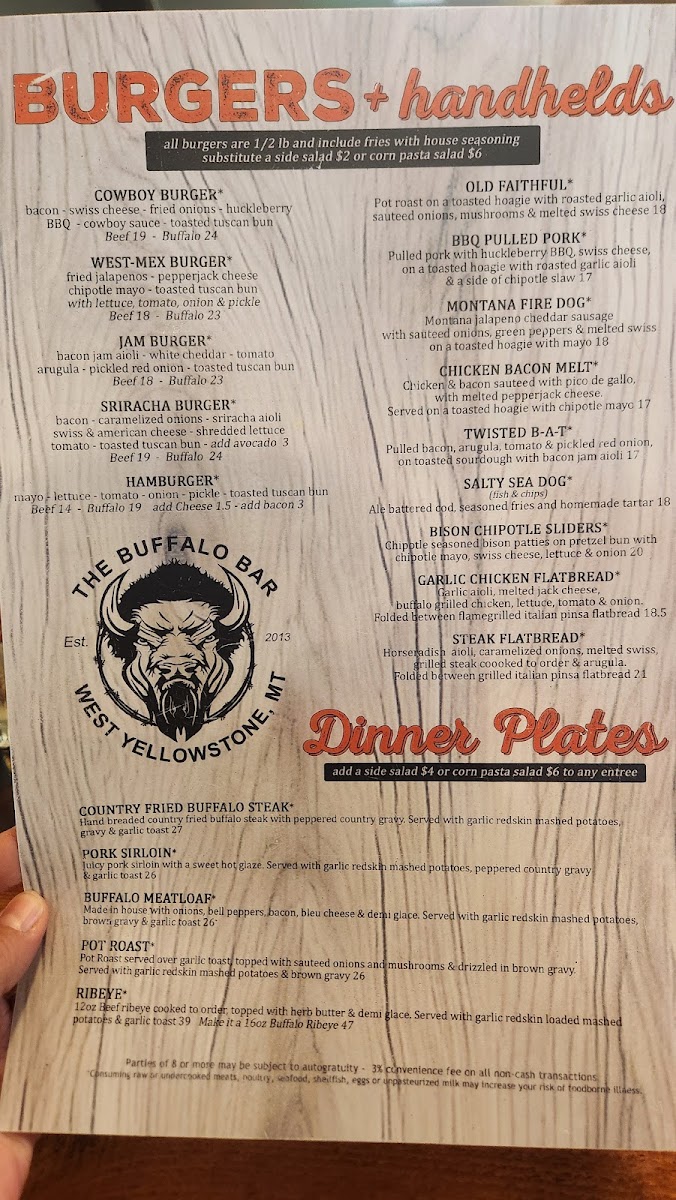 BURGERS + handhelds
all burgers are 1/2 lb and include fries with house seasoning
substitute a side salad $2 or corn pasta salad $6
COWBOY BURGER*
bacon - swiss cheese - fried onions - huckleberry
BBQ - cowboy sauce - toasted tuscan bun
Beef 19 - Buffalo 24
WEST-MEX BURGER*
fried jalapenos - pepperjack cheese
chipotle mayo - toasted tuscan bun
with lettuce, tomato, onion & pickle
Beef 18 - Buffalo 23
JAM BURGER*
bacon jam aioli - white cheddar - tomato
arugula - pickled red onion - toasted tuscan bun
Beef 18 - Buffalo 23
SRIRACHA BURGER*
bacon - caramelized onions - sriracha aioli
swiss & american cheese - shredded lettuce
tomato - toasted tuscan bun - add avocado 3
Beef 19 - Buffalo 24
HAMBURGER*
mayo - lettuce - tomato - onion - pickle - toasted tuscan bun
Beef 14 - Buffalo 19 add Cheese 1.5 - add bacon 3
THE BUFFALO BAR
Est. 2013
WEST YELLOWSTONE, MT
OLD FAITHFUL*
Pot roast on a toasted hoagie with roasted garlic aioli,
sauteed onions, mushrooms & melted swiss cheese 18
BBQ PULLED PORK*
Pulled pork with huckleberry BBQ, swiss cheese,
on a toasted hoagie with roasted garlic aioli
& a side of chipotle slaw 17
MONTANA FIRE DOG*
Montana jalapeno cheddar sausage
with sauteed onions, green peppers & melted swiss
on a toasted hoagie with mayo 18
CHICKEN BACON MELT*
Chicken & bacon sauteed with pico de gallo,
with melted pepperjack cheese.
Served on a toasted hoagie with chipotle mayo 17
TWISTED B-A-T*
Pulled bacon, arugula, tomato & pickled red onion,
on toasted sourdough with bacon jam aioli 17
SALTY SEA DOG*
(fish & chips)
Ale battered cod, seasoned fries and homemade tartar 18
BISON CHIPOTLE SLIDERS*
Chipotle seasoned bison patties on pretzel bun with
chipotle mayo, swiss cheese, lettuce & onion 20
GARLIC CHICKEN FLATBREAD*
Garlic aioli, melted jack cheese,
buffalo grilled chicken, lettuce, tomato & onion.
Folded between flamegrilled italian pinsa flatbread 18.5
STEAK FLATBREAD*
Horseradish aioli, caramelized onions, melted swiss,
grilled steak coooked to order & arugula.
Folded between grilled italian pinsa flatbread 21
Dinner Plates
add a side salad $4 or corn pasta salad $6 to any entree
COUNTRY FRIED BUFFALO STEAK*
Hand breaded country fried buffalo steak with peppered country gravy. Served with garlic redskin mashed potatoes,
gravy & garlic toast 27
PORK SIRLOIN*
Juicy pork sirloin with a sweet hot glaze. Served with garlic redskin mashed potatoes, peppered country gravy
& garlic toast 26
BUFFALO MEATLOAF*
Made in house with onions, bell peppers, bacon, bleu cheese & demi glace. Served with garlic redskin mashed potatoes,
brown gravy & garlic toast 26
POT ROAST*
Pot Roast served over garlic toast, topped with sauteed onions and mushrooms & drizzled in brown gravy.
Served with garlic redskin mashed potatoes & brown gravy 26
RIBEYE*
12oz Beef ribeye cooked to order, topped with herb butter & demi glace. Served with garlic redskin loaded mashed
potatoes & garlic toast 39 Make it a 16oz Buffalo Ribeye 47
Parties of 8 or more may be subject to autogratuity - 3% convenience fee on all non-cash transactions.
*Consuming raw or undercooked meats, poultry, seafood, shellfish, eggs or unpasteurized milk may increase your risk of foodborne illness.